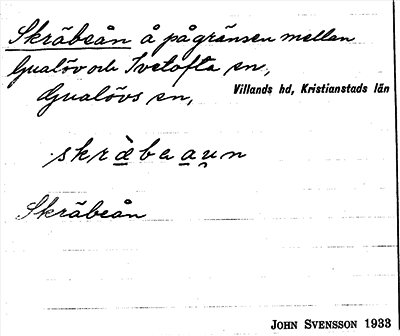 Skräbeån å på gränsen mellan
Gualöv och Ivetofta sn,
Gualövs sn, Villands hd, Kristianstads län
skràbeaun
Skräbeån
JOHN SVENSSON 1933